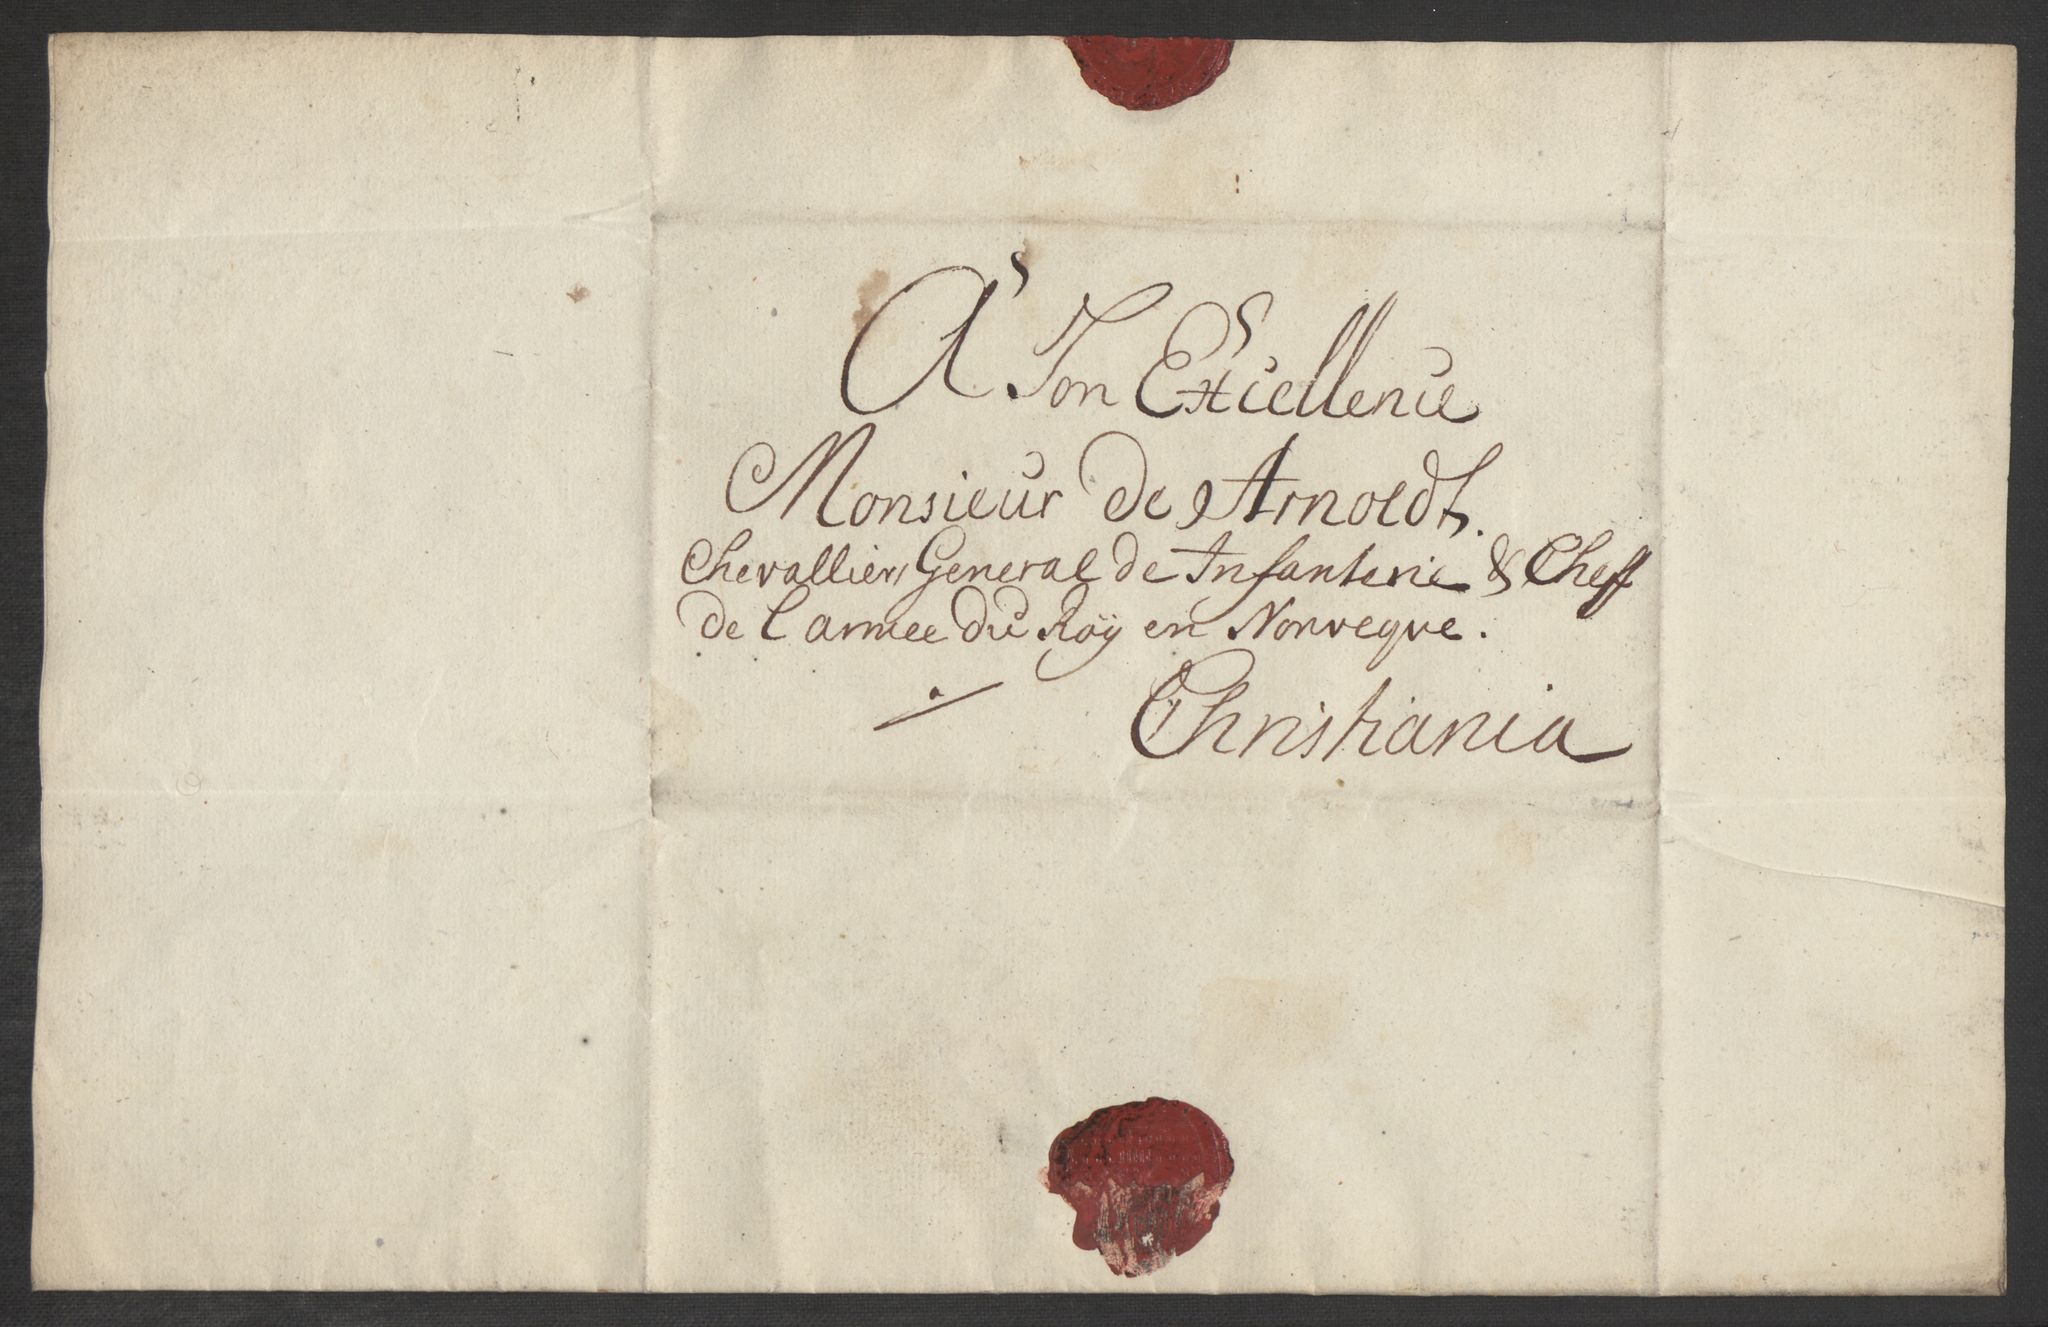 A Son Excellence
Monsieur de Arnoldt.
Chevallier, General de Infanterie & Cheff
de l'armee du Roÿ en Norvegve.
Christiania